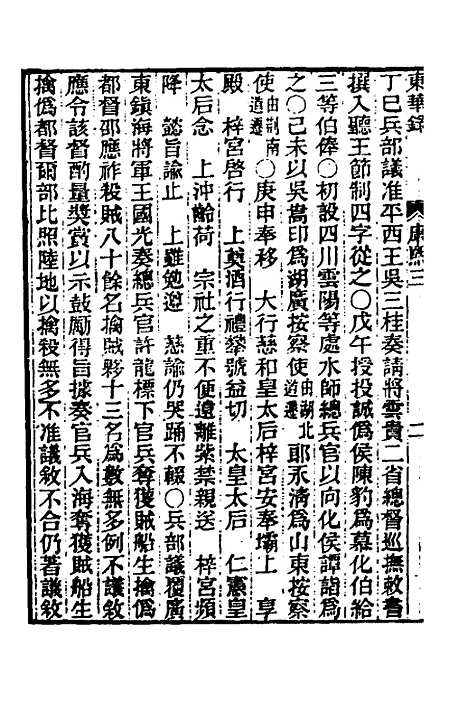 東華錄　康熙三　二
丁巳兵部議准平西王吳三桂奏請將雲貴二省總督巡撫敕書
撰入聽王節制四字從之○戊午授投誠僞侯陳豹爲慕化伯給
三等伯俸○初設四川雲陽等處水師總兵官以向化侯譚詣爲
之○己未以吳嵩印爲湖廣按察使由湖北道遷郎永淸爲山東按察
使由荆南道遷○庚申奉移　大行慈和皇太后梓宮安奉壩上　享
殿　梓宮啓行　上奠酒行禮擧號益切　太皇太后　仁憲皇
太后念　上沖齡荷　宗社之重不便遠離紫禁親送　梓宮頻
降　懿旨諭止　上雖勉遵　慈諭仍哭踊不輟○兵部議覆廣
東鎭海將軍王國光奏總兵官許龍標下官兵奪獲賊船生擒僞
都督邵應祚殺賊八十餘名擒賊夥十三名爲數無多例不議敘
應令該督酌量奬賞以示鼓勵得旨據奏官兵入海奪獲賊船生
擒僞都督爾部比照陸地以擒殺無多不准議敘不合仍著議敘